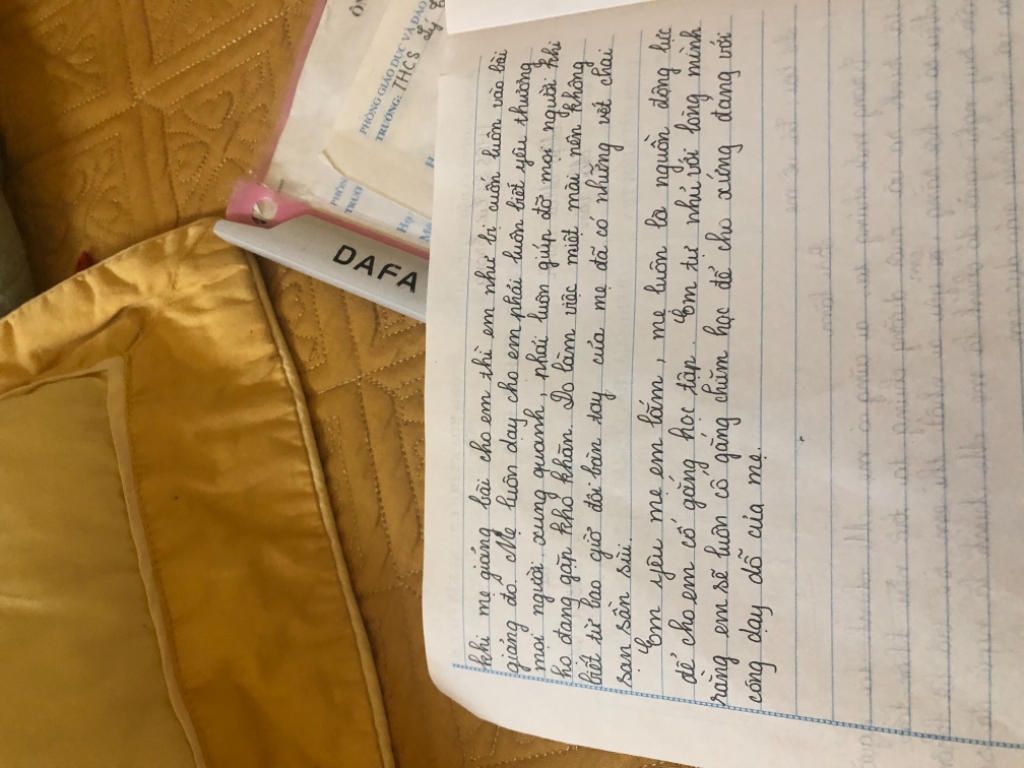 khi mẹ giảng bài cho em thì em như bị cuốn luôn vào bài
giảng đó. Mẹ luôn dạy cho em phải luôn biết yêu thương
mọi người xung quanh, phải luôn giúp đỡ mọi người khi
họ đang gặp khó khăn. Do làm việc miệt mài nên không
biết từ bao giờ đôi bàn tay của mẹ đã có những vết chai
sạn sần sùi.
Em yêu mẹ em lắm, mẹ luôn là nguồn động lực
để cho em cố gắng học tập. Em tự nhủ với lòng mình
rằng em sẽ luôn cố gắng chăm học để cho xứng đáng với
công dạy dỗ của mẹ.
DAFA
PHÒNG GIÁO DỤC VÀ ĐÀO
TRƯỜNG: THCS
PHÒN
TRƯỜ
Họ